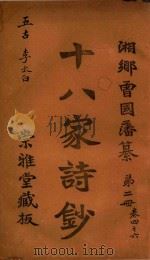 湘鄉曾國藩纂
第二冊
卷四 六
十八家詩鈔
五古 李太白
雅堂藏板